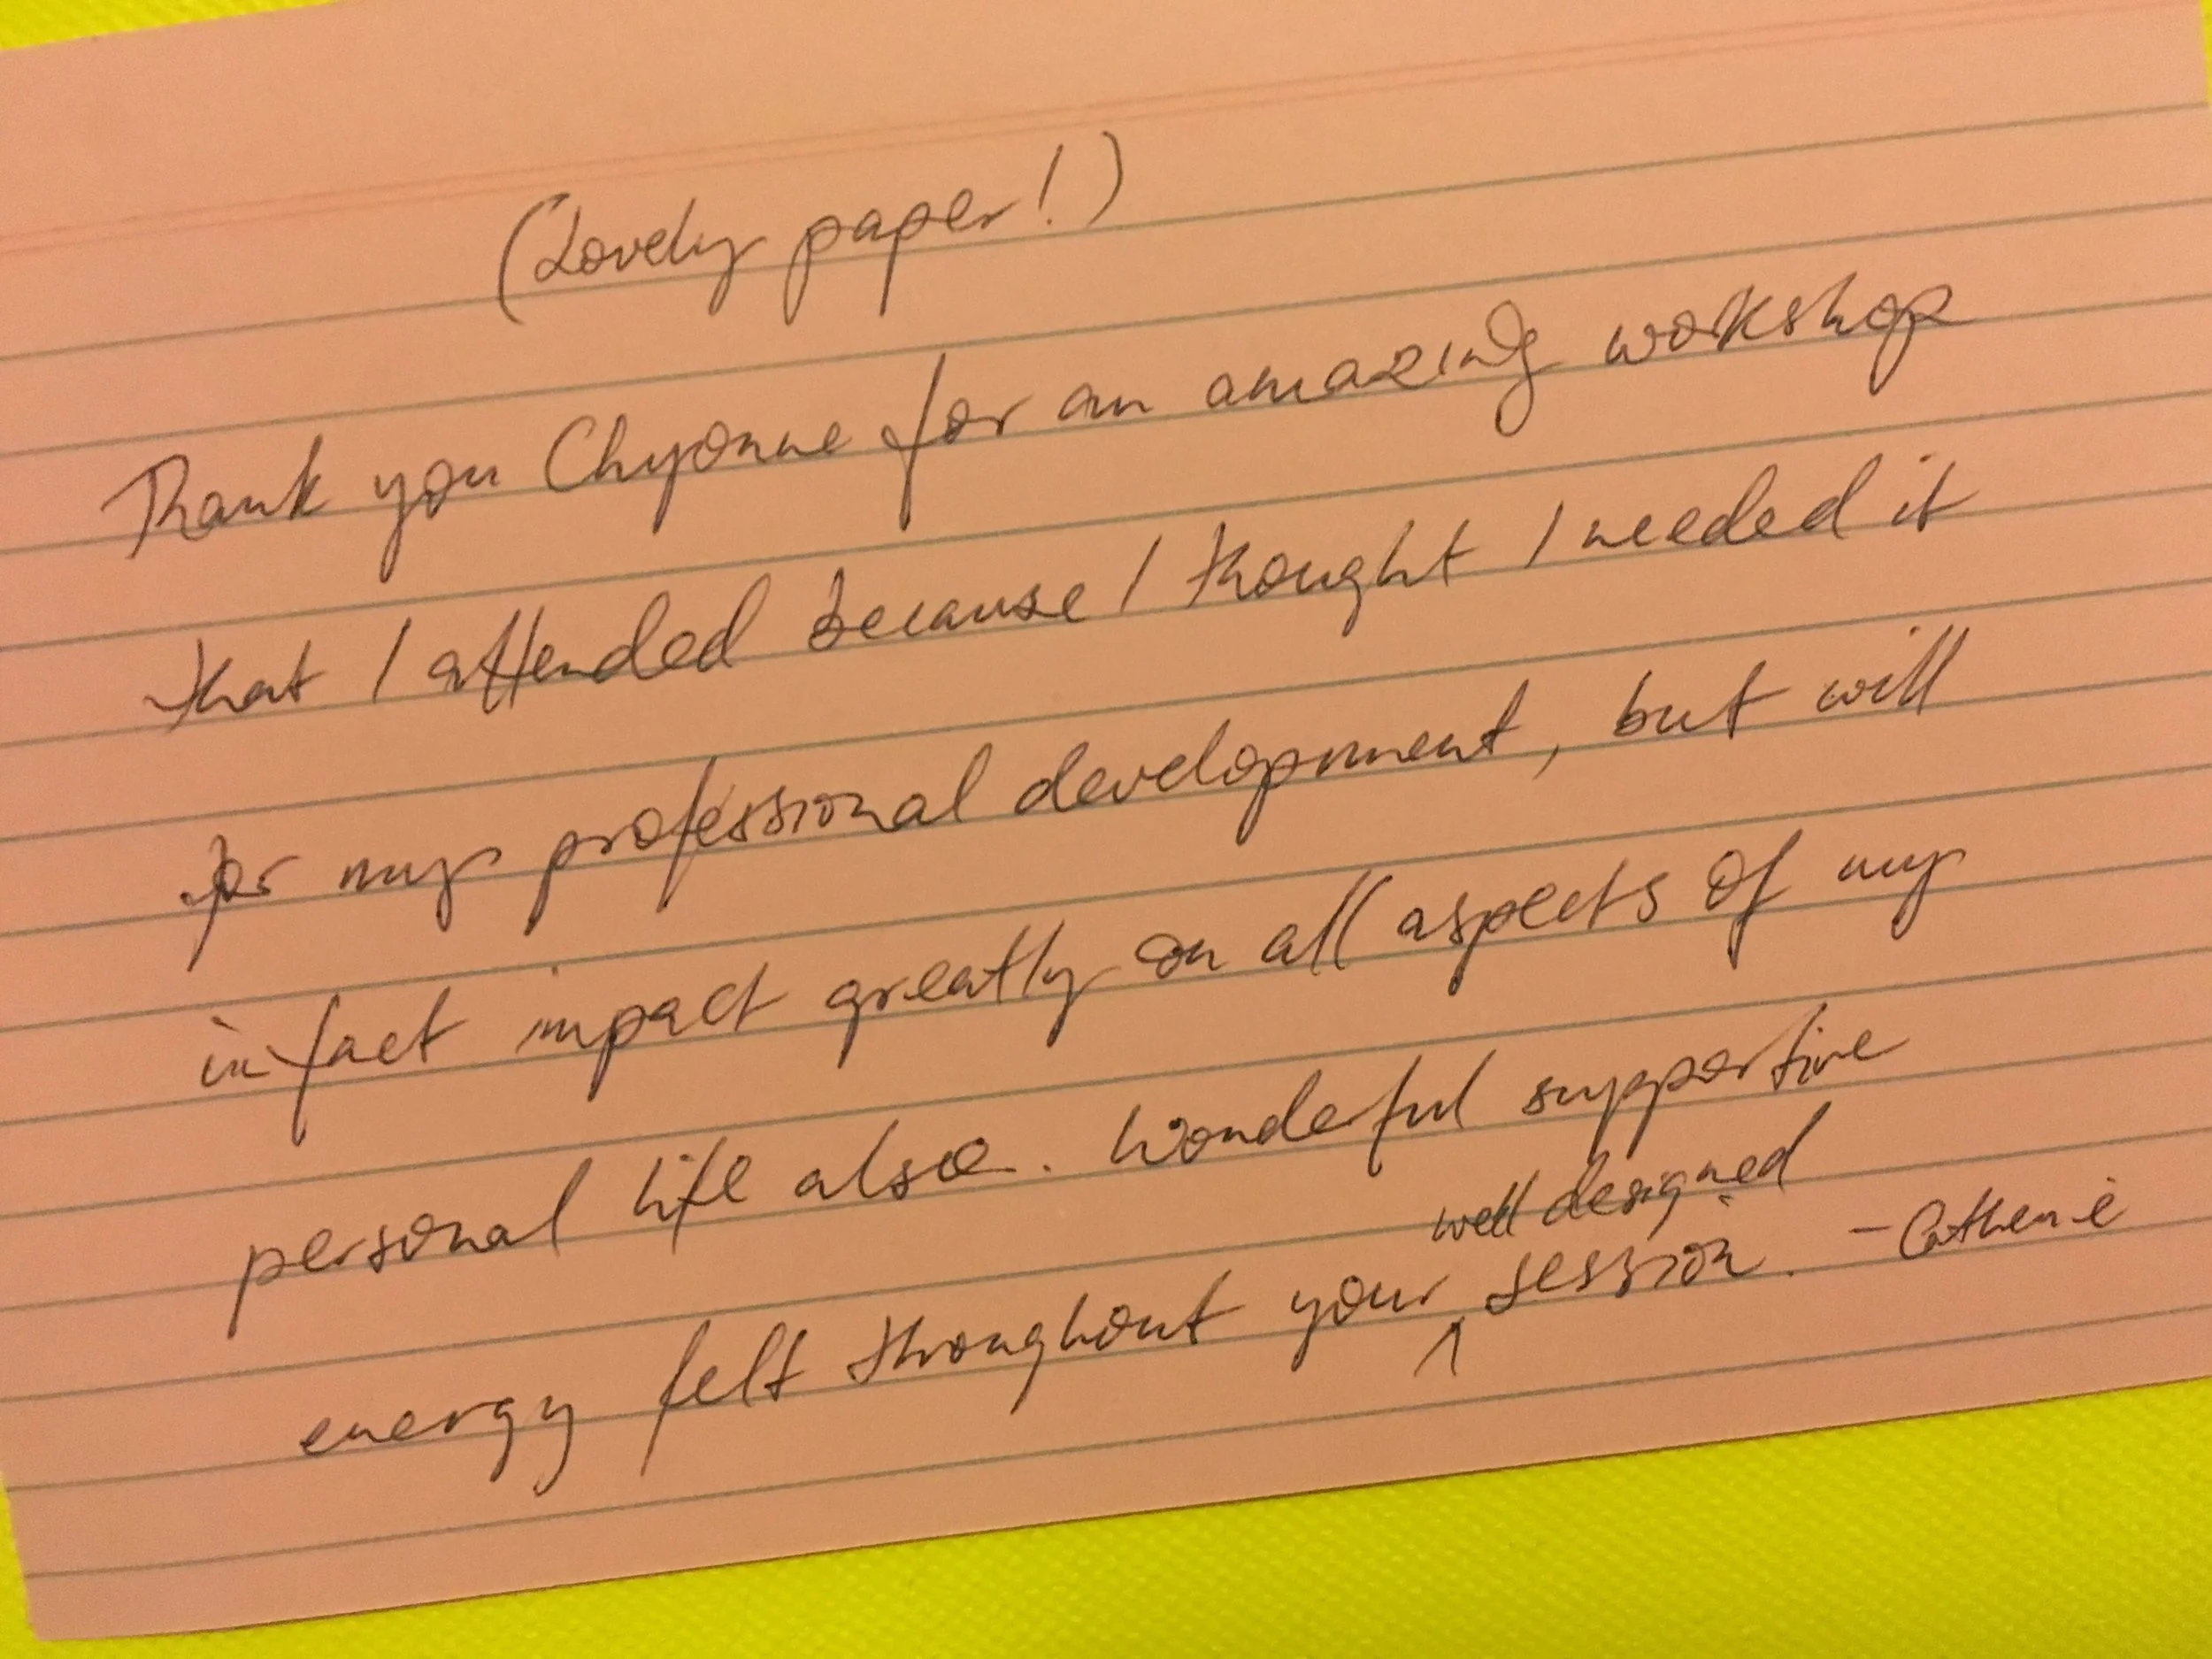 (Lovely paper!)
Thank you Chyonne for an amazing workshop
that I attended because I thought I needed it
for my professional development, but will
in fact impact greatly on all aspects of my
personal life also. Wonderful supportive
well designed
energy felt throughout your ^ session. - Catherine